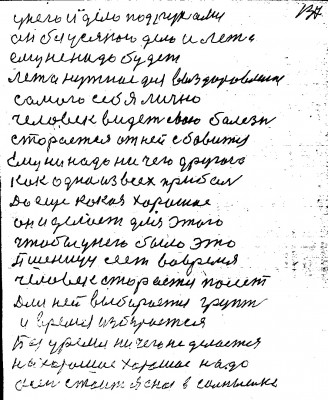 137
у него и дело под руками
он бы усялого дело и лета
ему не надо будет
лета нужное для выздоровления
самого себя лично
человек видет свою болезн
старается от ней сбавится
ему не надо ничего другого
как одна из всех прибыл
Да еще какая хорошая
он и делает для этого
чтобы у него было это
Пшеницу сеет вовремя
человек старается полет
Для ней выбирается грунт
и время избирается
Без уремя ничего не делается
на хорошае хорошае надо
стоит ясна в солнышке